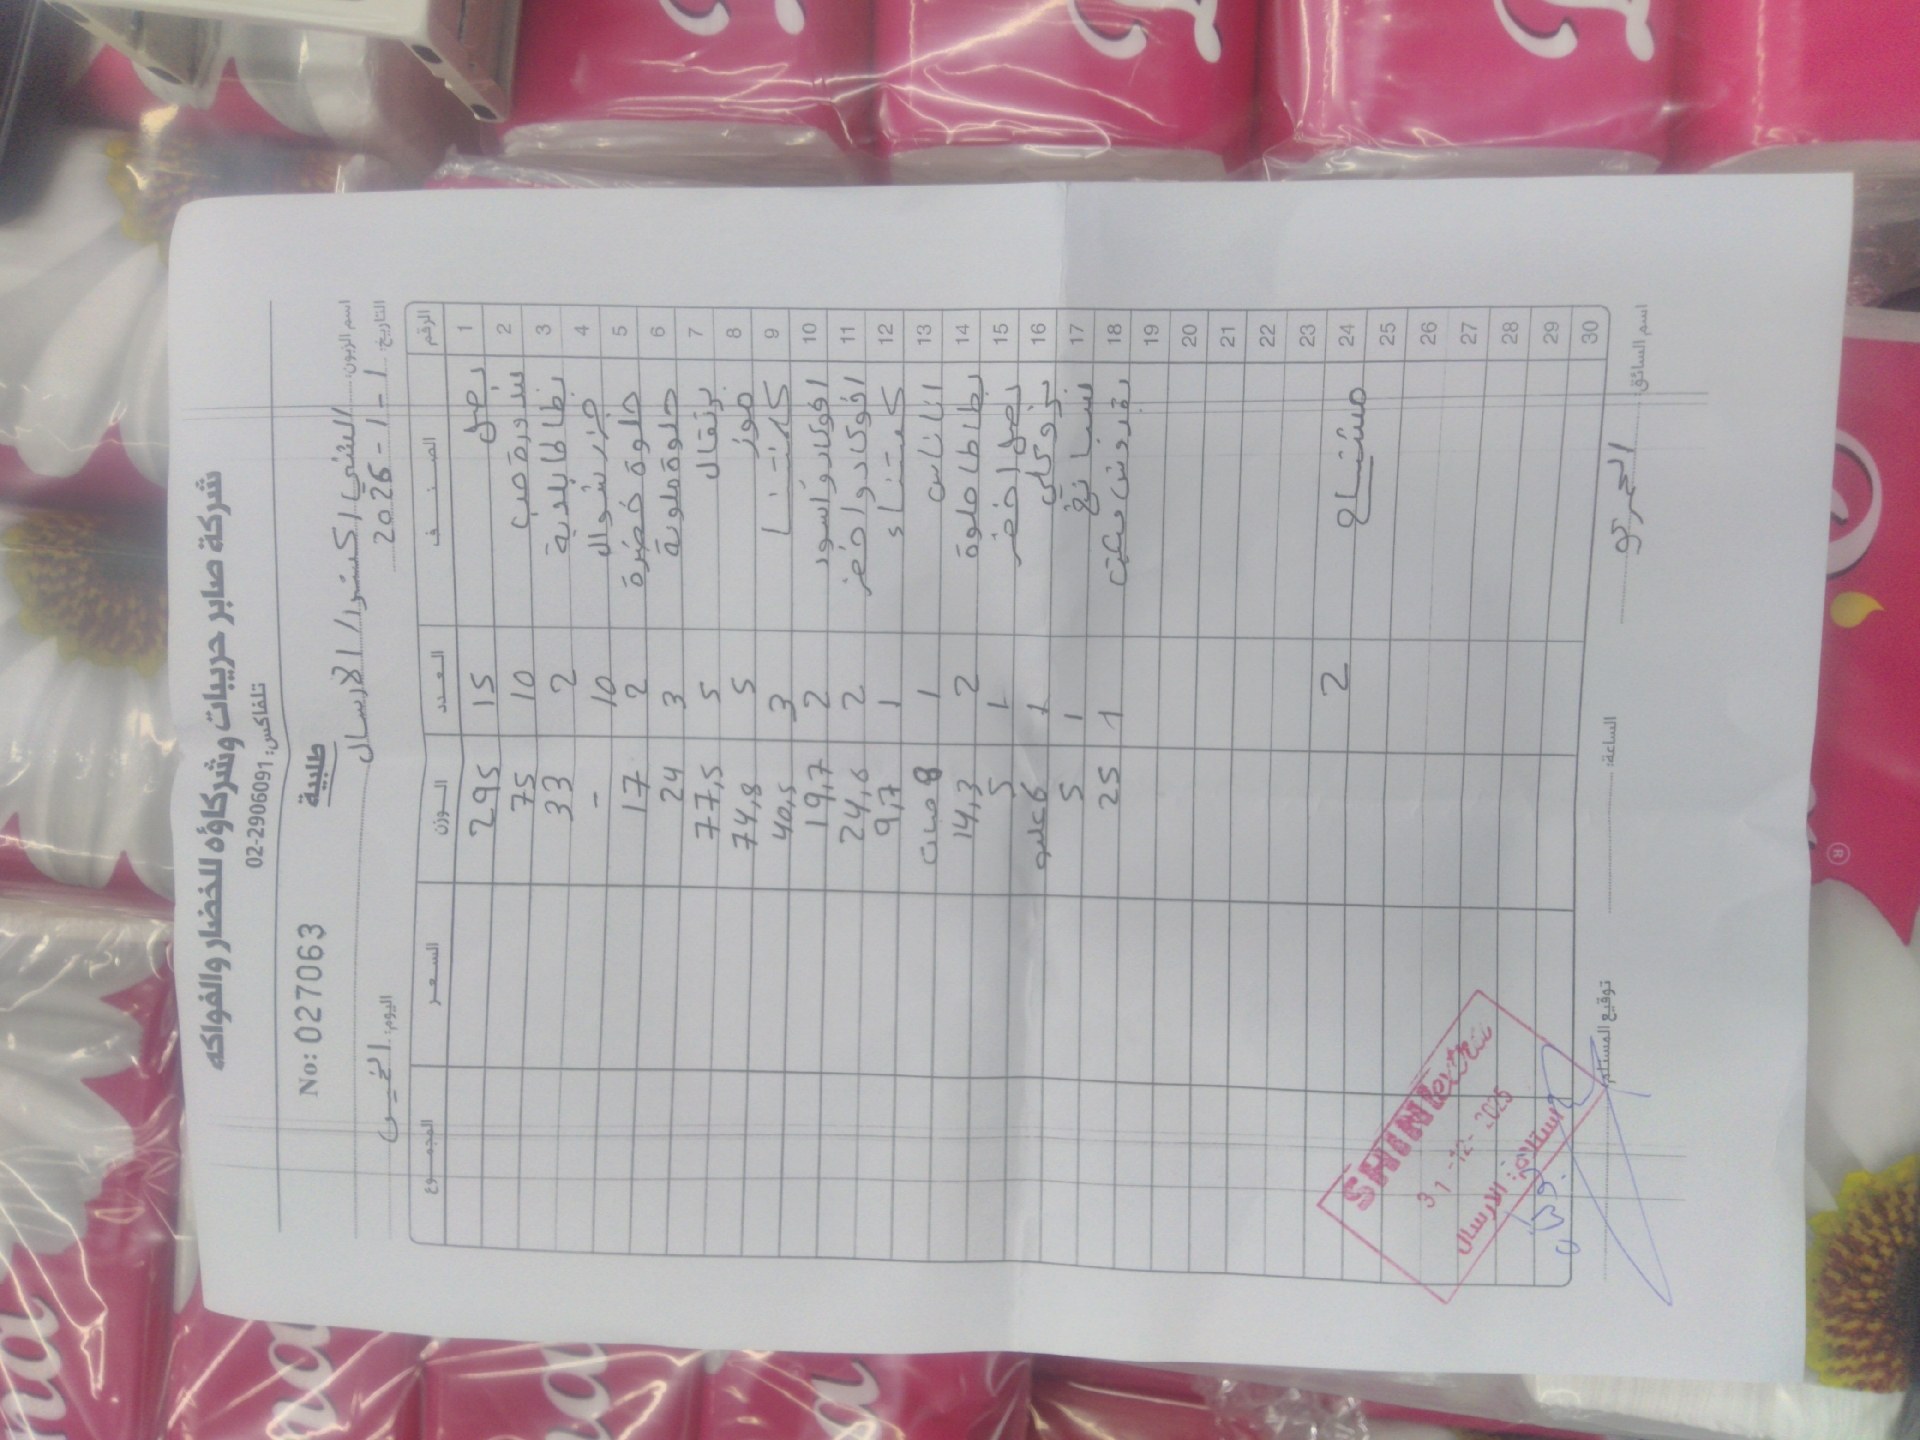 شركة صابر حريبات وشركاؤه للخضار والفواكه
تلفاكس: 02-2906091
طلبية
No: 027063
اسم الزبون: الشني اكسترا / الارسال
التاريخ: 2026-1-1 اليوم: الخميس
الرقم الصنف العدد الوزن السعر المجموع
1 بصل 15 295
2 بندورة حب 10 75
3 بطاطا بلدية 2 33
4 شوال 10 -
5 حلوة خضرة 2 17
6 حلوة ملونة 3 24
7 برتقال 5 77,5
8 موز 5 74,8
9 3 40,5
10 افوكادو اسود 2 19,7
11 افوكادو اخضر 2 24,6
12 كستناء 1 9,7
13 اناناس 1 8 حبات
14 بطاطا حلوة 2 14,3
15 بصل اخضر 1 5
16 بروكلي 1 6 علبه
17 سبانخ 1 5
18 1 25
19
20
21
22
23
24 مشتاح 2
25
26
27
28
29
30
اسم السائق: الساعة: توقيع المستلم
SHINI extra
31-12-2025
استلام: الارسال
R